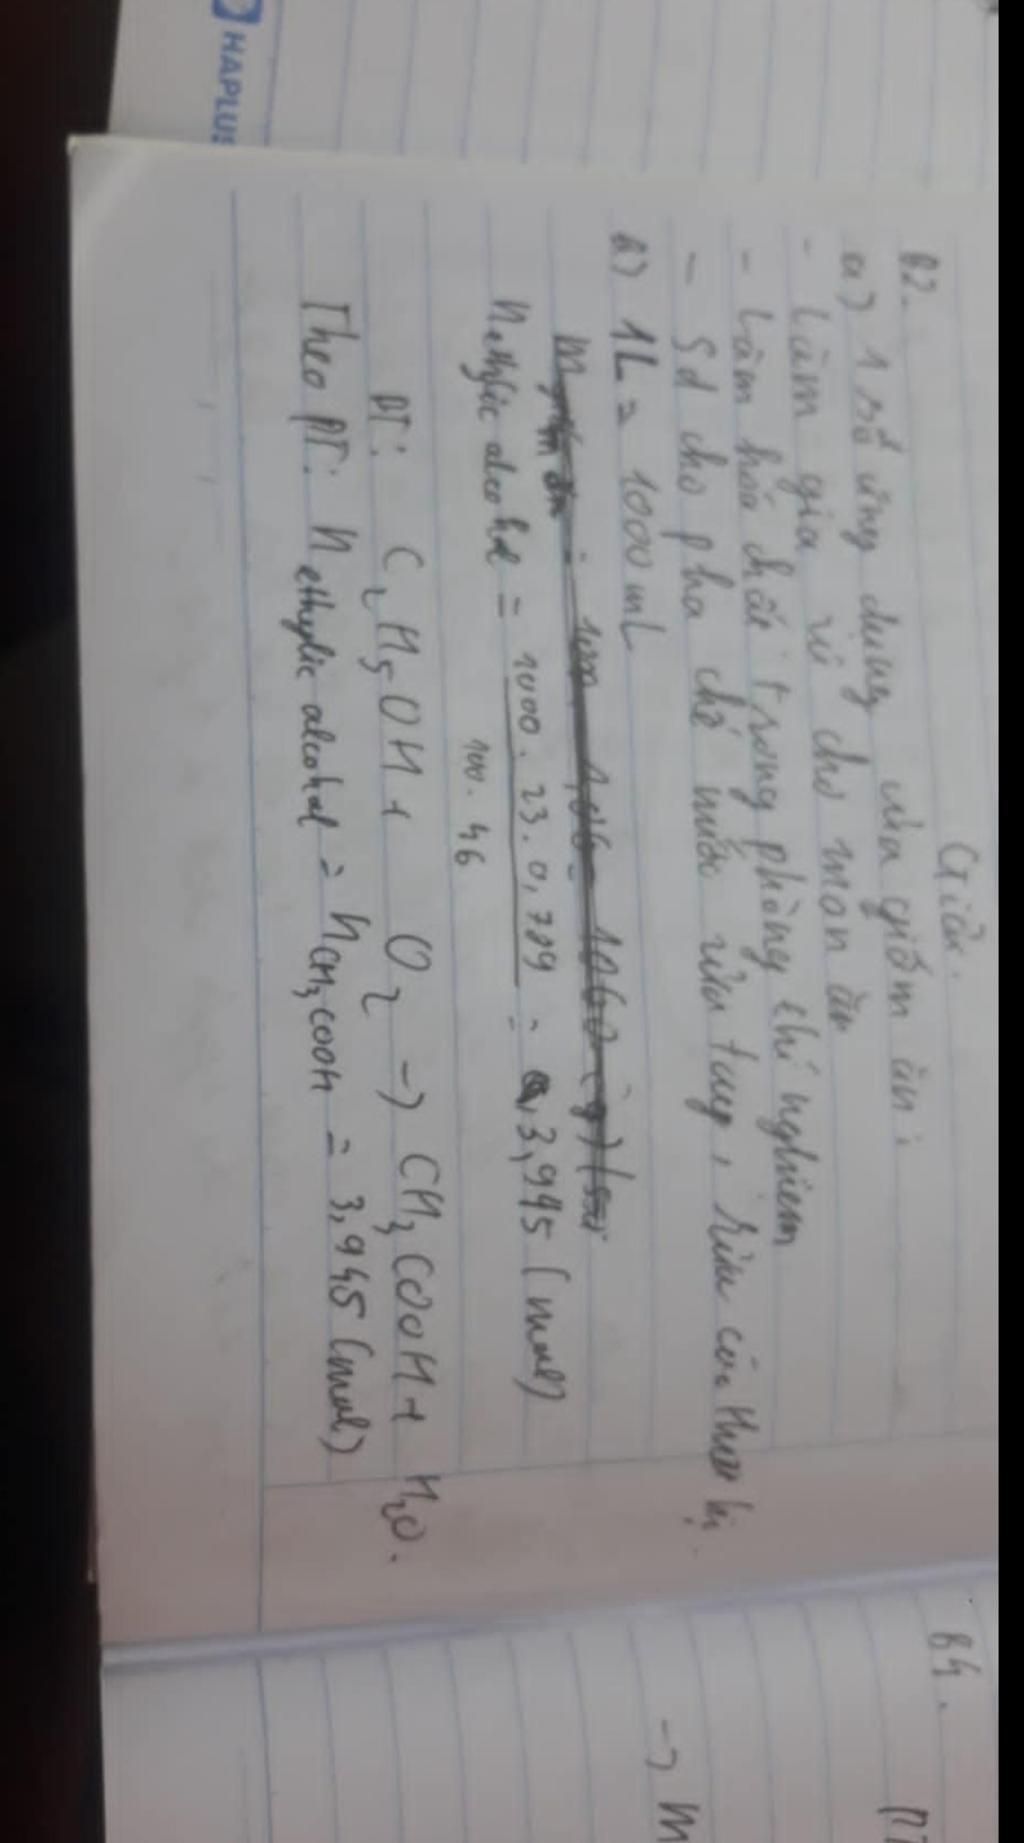 HAPLUS
Giải.
B2.
a) 1 số ứng dụng của giấm ăn:
- Làm gia vị cho món ăn
- Làm hóa chất trong phòng thí nghiệm
- Sd cho pha chế nước rửa tay, rửa các thiết bị.
b) 1L = 1000 mL
n ethylic alcohol = 1000 . 23 . 0,789 / 100 . 46 = 3,945 (mol)
PT: C2H5OH + O2 → CH3COOH + H2O.
Theo PT: n ethylic alcohol = n CH3COOH = 3,945 (mol)
B4.
PT
→ m